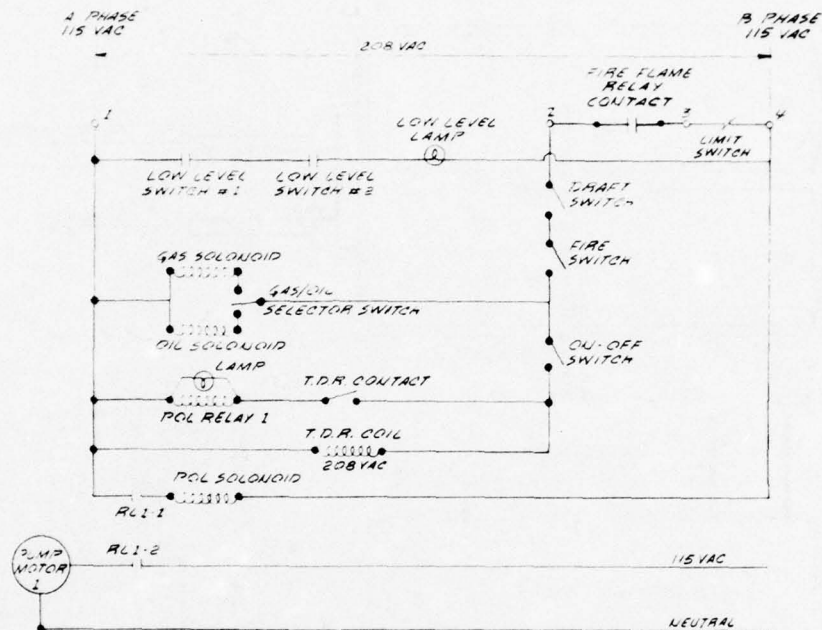 A PHASE
115 VAC
B PHASE
115 VAC
208 VAC
FIRE FLAME
RELAY
CONTACT
1
2
3
4
LOW LEVEL
LAMP
LIMIT
SWITCH
LOW LEVEL
SWITCH #1
LOW LEVEL
SWITCH #2
DRAFT
SWITCH
FIRE
SWITCH
GAS SOLONOID
GAS/OIL
SELECTOR SWITCH
OIL SOLONOID
ON-OFF
SWITCH
LAMP
T.D.R. CONTACT
POL RELAY 1
T.D.R. COIL
208 VAC
POL SOLONOID
RL1-1
RL1-2
PUMP
MOTOR
1
115 VAC
NEUTRAL